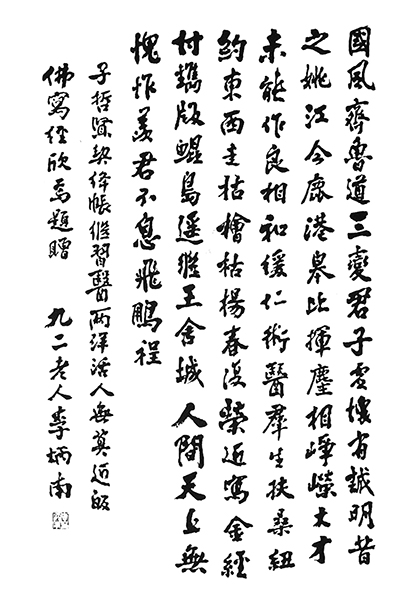 國風齊魯道三變君子虛懷有誠明昔
之姚江今鹿港皋比揮麈相崢嶸大才
未能作良相和緩仁術醫羣生扶桑紐
約東西走枯檜枯楊春復榮近寫金經
付鐫版鯤島遙繼王舍城人間天上無
愧怍羨君不息飛鵬程
子哲賢契絳帳繼習醫兩洋活人無算近皈
佛寫經欣為題贈 九二老人李炳南